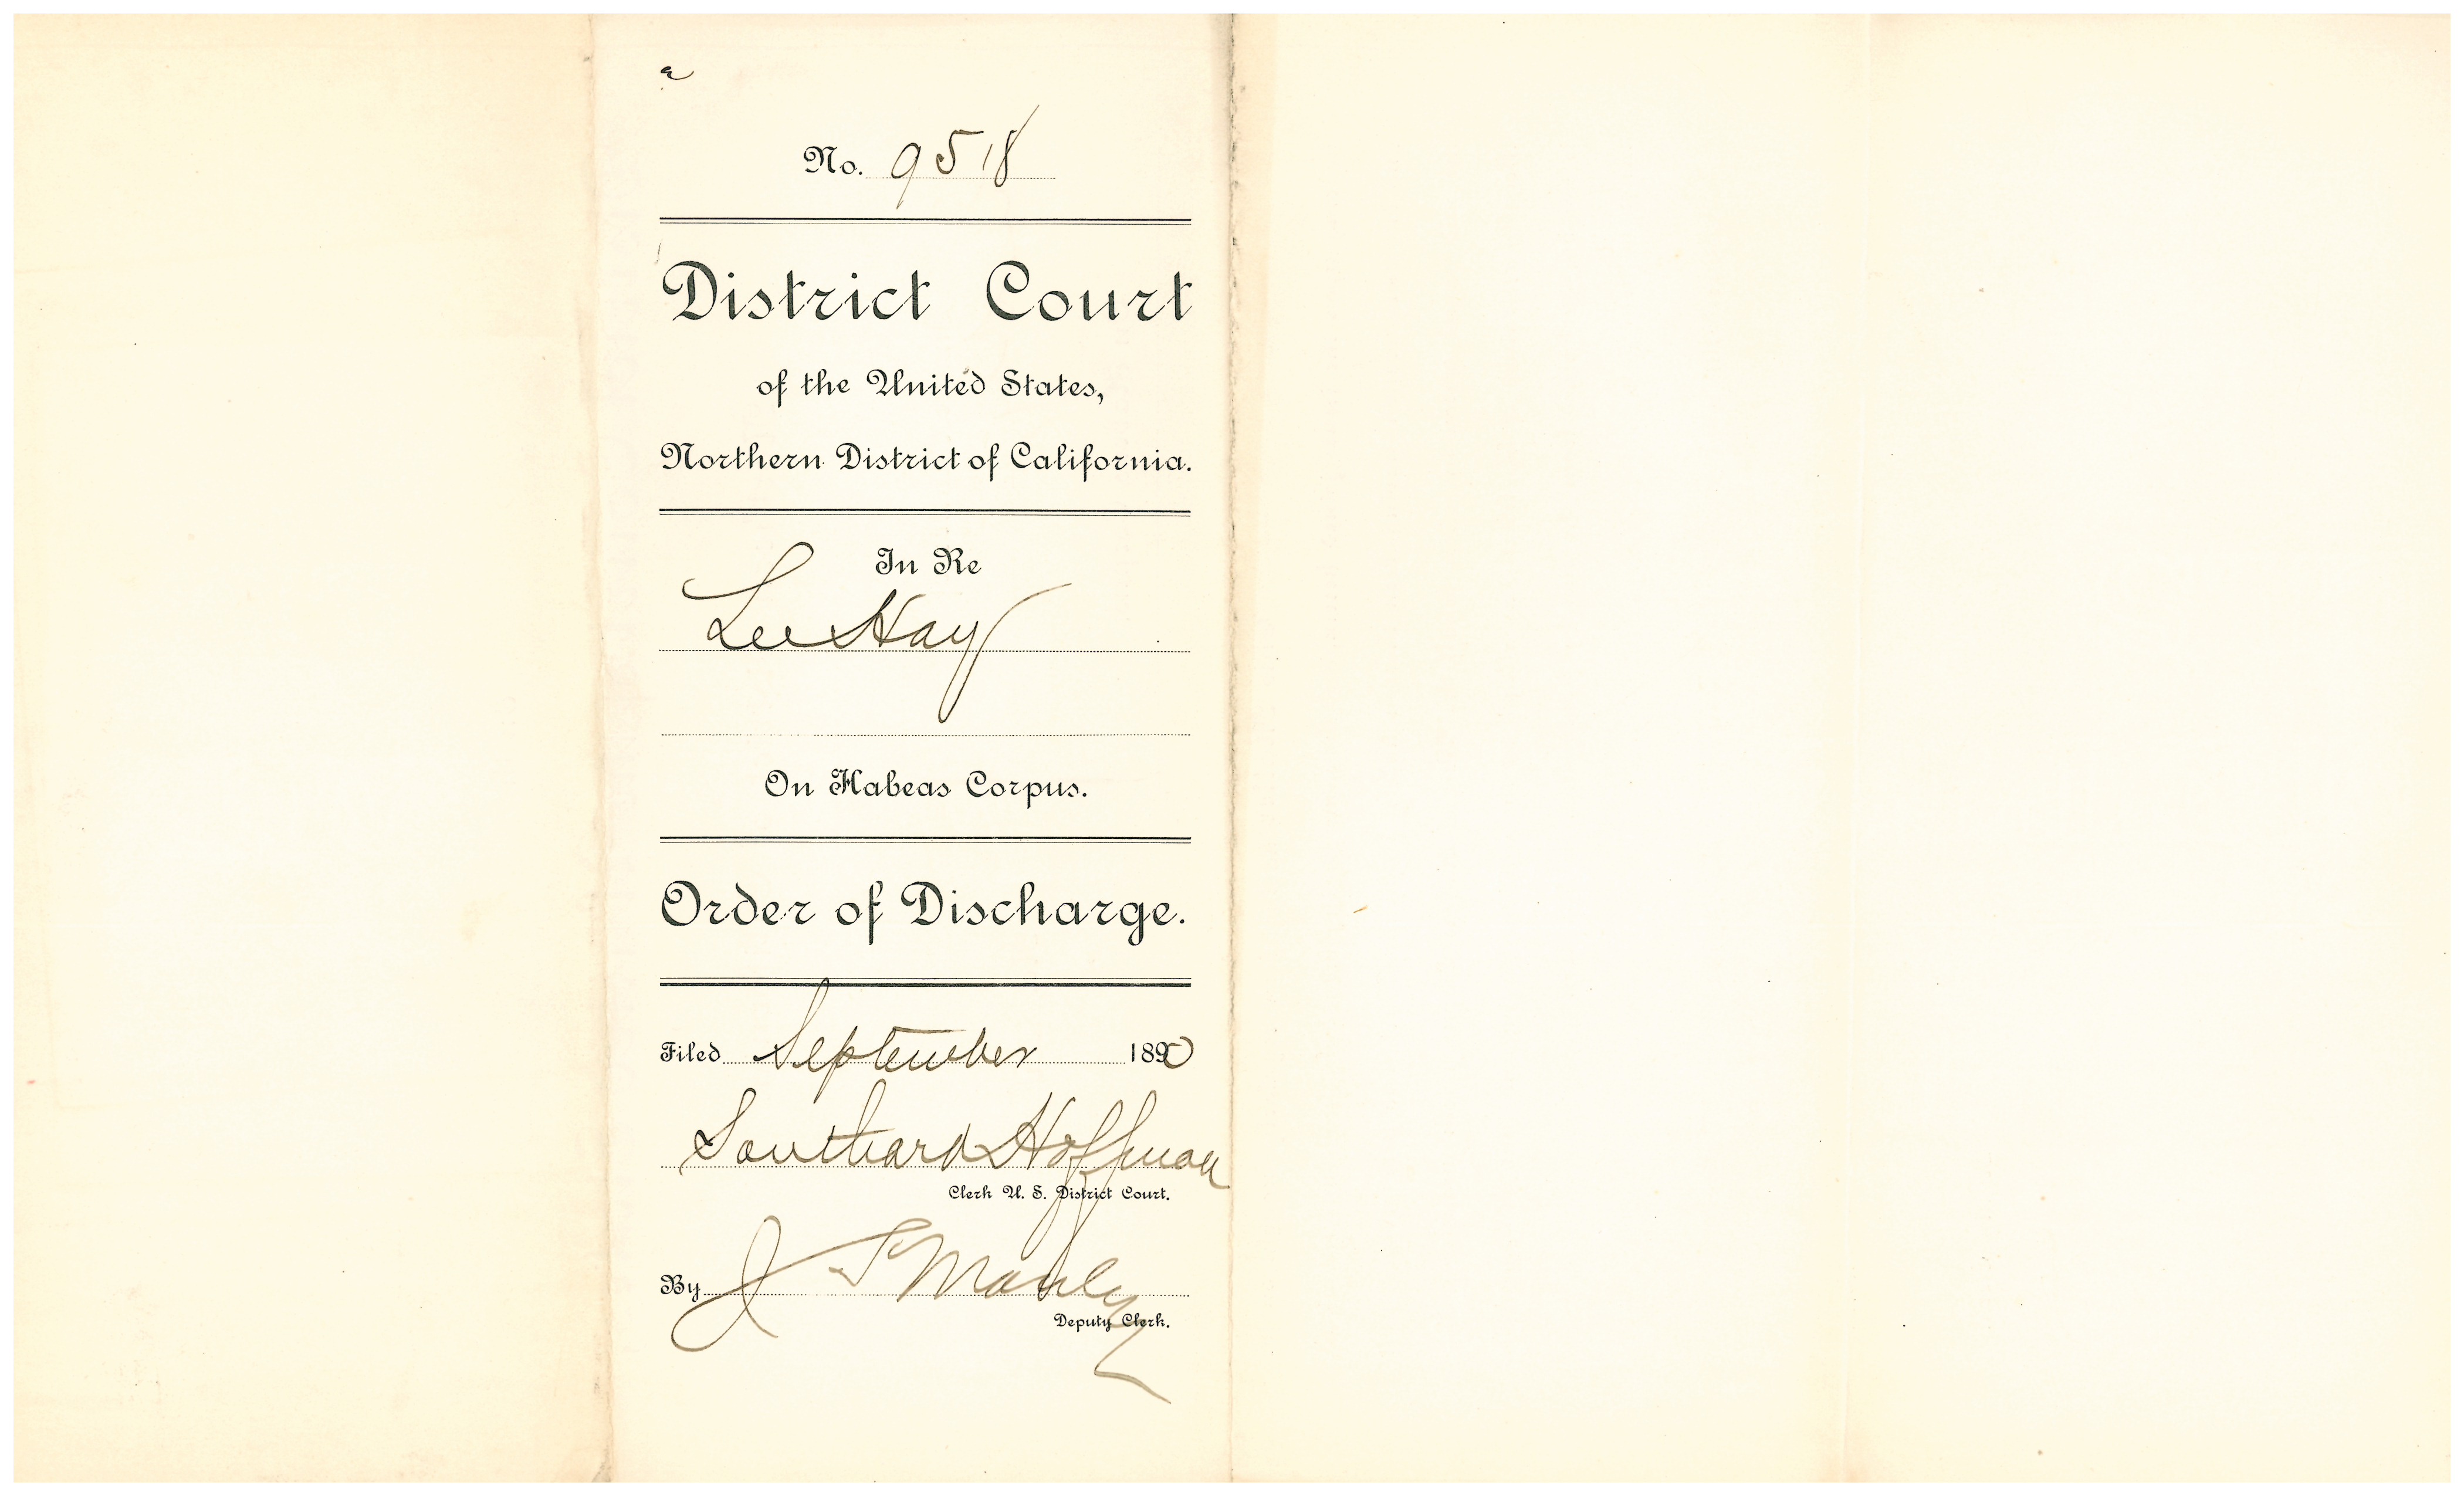 No. 9518
District Court
of the United States,
Northern District of California.
In Re
Lee Hay
On Habeas Corpus.
Order of Discharge.
Filed September 1890
Southard Hoffman
Clerk U. S. District Court.
By J S Manley
Deputy Clerk.